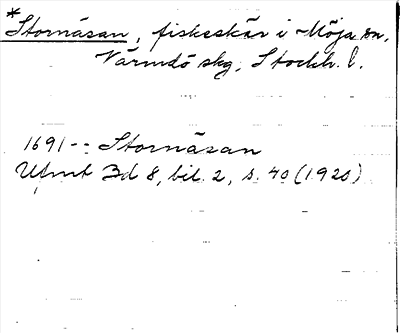 *
Stornäsan, fiskeskär i Möja sn,
Värmdö skg, Stockh. l.
1691 -- Stornäsan
Utmt Bd 8, bil. 2, s. 40 (1920)